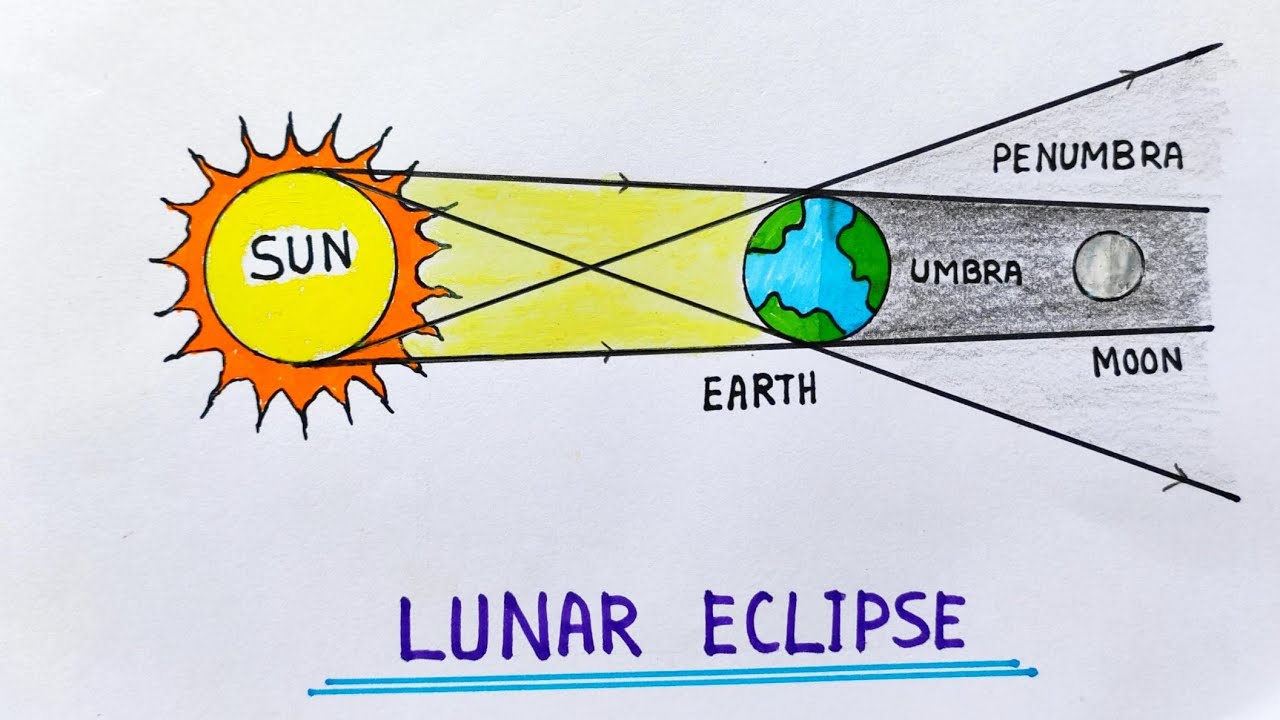 PENUMBRA
SUN
UMBRA
MOON
EARTH
LUNAR ECLIPSE